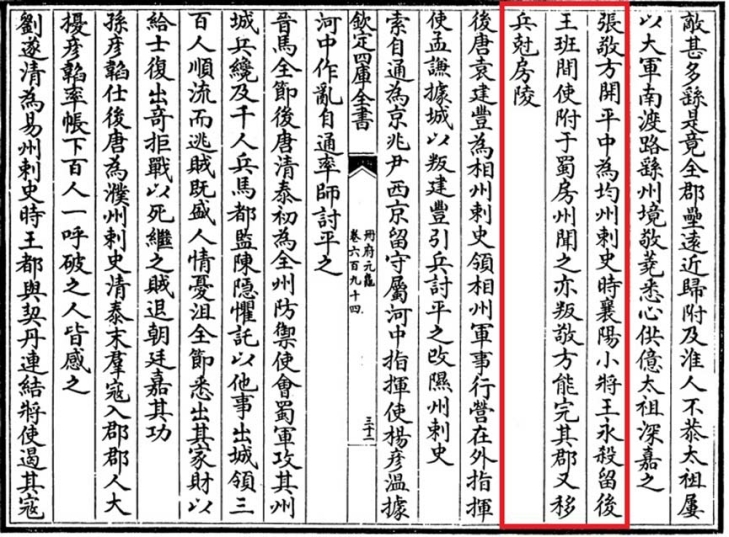 敵甚多繇是竟全郡壘遠近歸附及淮人不恭太祖屢
以大軍南渡路繇州境敬蕘悉心供億太祖深嘉之
張敬方開平中為均州刺史時襄陽小將王永殺留後
王班間使附于蜀房州聞之亦叛敬方能完其郡又移
兵尅房陵
後唐袁建豐為相州刺史領相州軍事行營在外指揮
使孟謙據城以叛建豐引兵討平之改隰州刺史
索自通為京兆尹西京留守屬河中指揮使楊彥溫據
欽定四庫全書
冊府元龜
卷六百九十四
三十二
河中作亂自通率師討平之
晉馬全節後唐清泰初為全州防禦使會蜀軍攻其州
城兵纔及千人兵馬都監陳隱懼託以他事出城領三
百人順流而逃賊既盛人情憂沮全節悉出其家財以
給士復出奇拒戰以死繼之賊退朝廷嘉其功
孫彥韜仕後唐為濮州刺史清泰末羣寇入郡郡人大
擾彥韜率帳下百人一呼破之人皆感之
劉遂清為易州刺史時王都與契丹連結將使遏其寇